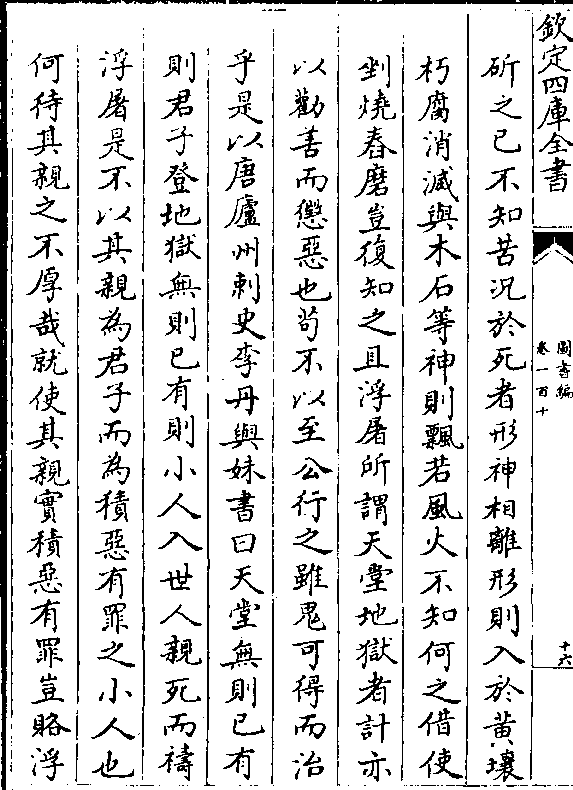 欽定四庫全書
圖書編
卷一百十
十六
斫之已不知苦況於死者形神相離形則入於黄壤
朽腐消滅與木石等神則飄若風火不知何之借使
剉燒舂磨豈復知之且浮屠所謂天堂地獄者計亦
以勸善而懲惡也茍不以至公行之雖鬼可得而治
乎是以唐廬州刺史李丹與妹書曰天堂無則已有
則君子登地獄無則已有則小人入世人親死而禱
浮屠是不以其親為君子而為積惡有罪之小人也
何待其親之不厚哉就使其親實積惡有罪豈賂浮